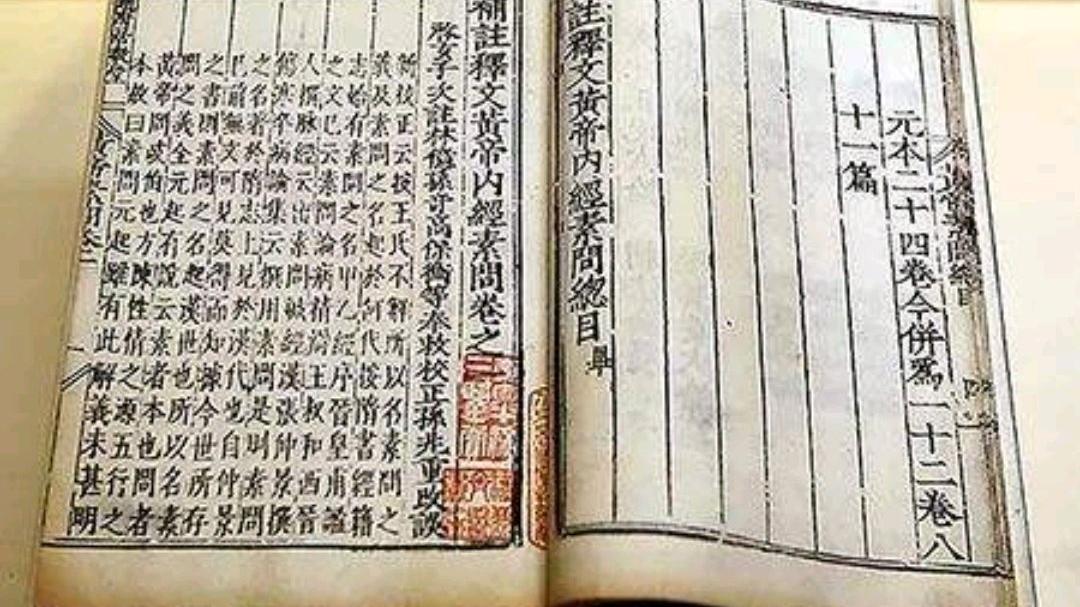 元本二十四卷今併爲一十二卷八
十一篇
註釋文黃帝內經素問總目畢
補註釋文黃帝內經素問卷之一
啓玄子次註林億孫奇高保衡等奉敕校正孫兆重改誤
新校正云按王氏不釋所以名素問之
義及素問之名起於何代按隋書經籍
志始有素問之名甲乙經序晉皇甫謐
之文已云素問論病精辯王叔和西晉
人撰脉經云出素問鍼經漢張仲景撰
傷寒卒病論集云撰用素問是則素問
之名著於隋志上見於漢代也自仲景
已前無文可見莫得而知據今世所存
之書則素問之名起漢世也所以名素
問之義全元起有說云素者本也問者
黃帝問岐伯也方陳性情之源五行之
本故曰素問元起雖有此解義未甚明